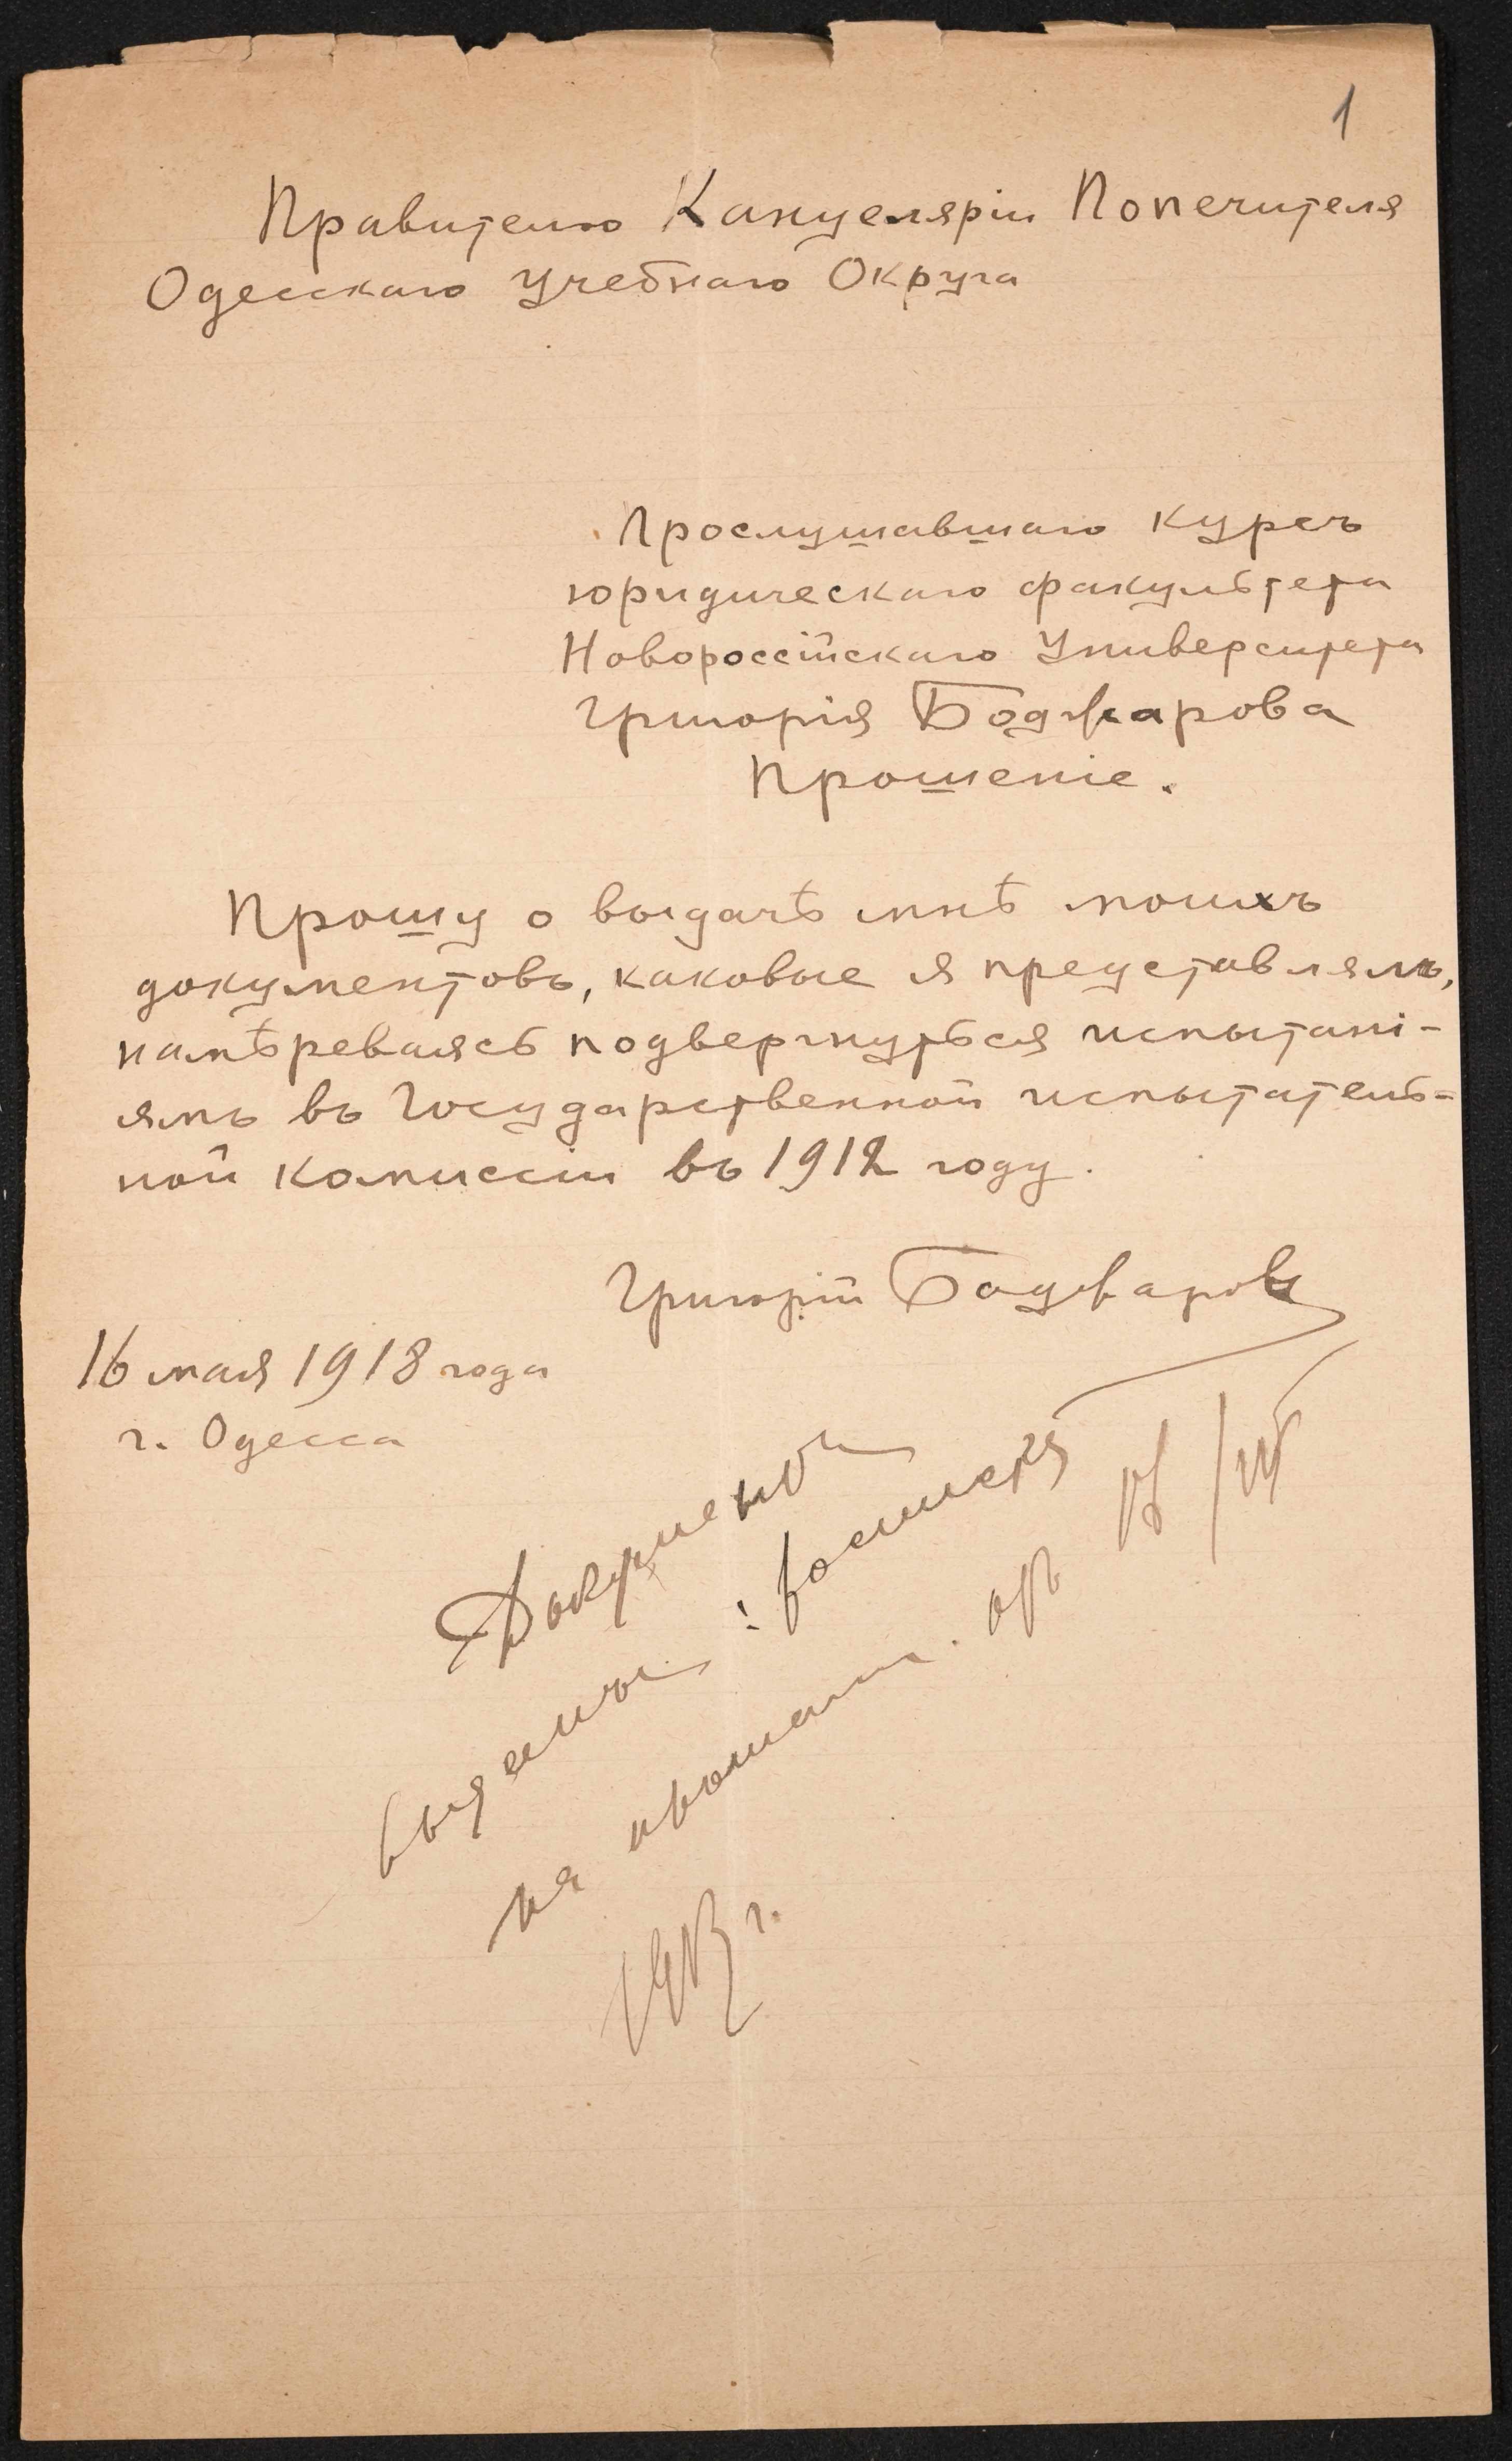 1
Правителю Канцеляріи Попечителя
Одесскаго Учебнаго Округа
Прослушавшаго курсъ
юридическаго факультета
Новороссійскаго Университета
Григорія Боджарова
Прошеніе.
Прошу о выдачѣ мнѣ моихъ
документовъ, каковые я представлялъ,
намѣреваясь подвергнуться испытані-
ямъ въ Государственной испытатель-
ной комиссіи въ 1912 году.
Григорій Боджаровъ
16 мая 1918 года
г. Одесса
Документы
выданы
на